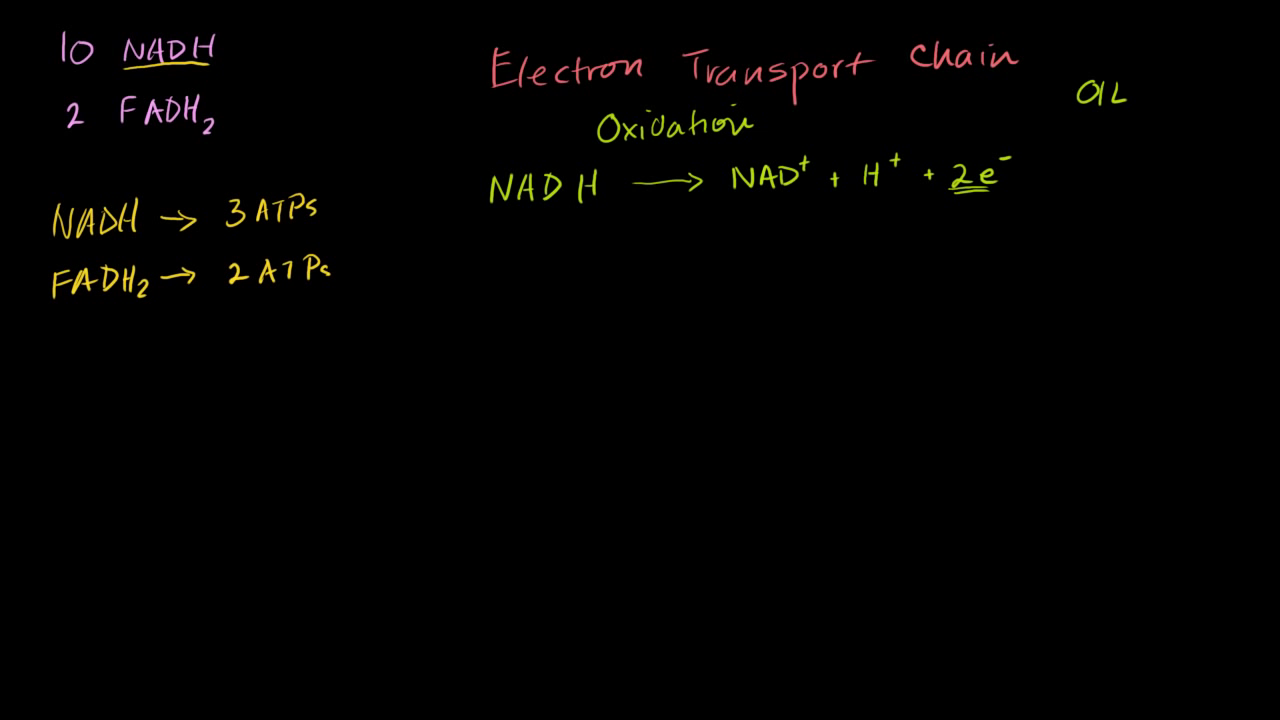 10 NADH
2 FADH₂
NADH → 3 ATPs
FADH₂ → 2 ATPs
Electron Transport Chain
Oxidation
NADH → NAD⁺ + H⁺ + 2e⁻
OIL